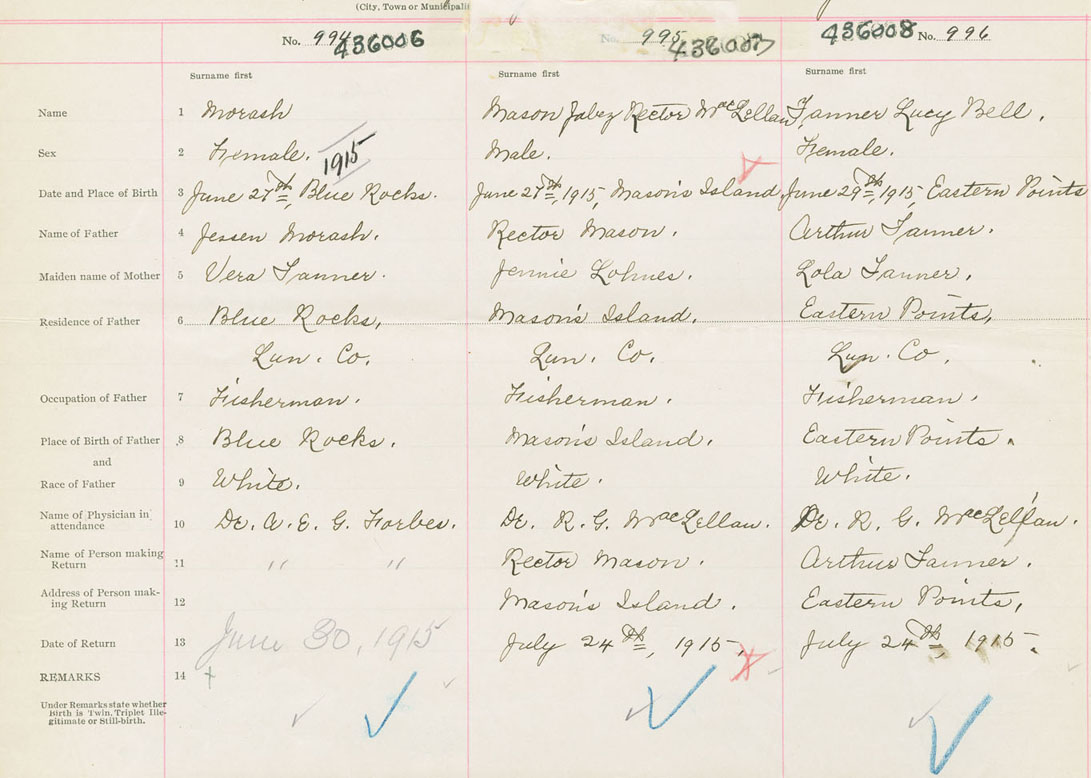 (City, Town or Municipali
No. 994 436006
No. 995 436007
436008 No. 996
Surname first Surname first Surname first
Name 1 Morash Mason Jabez Rector MacLellan, Tanner Lucy Bell.
Sex 2 Female. 1915 Male. Female.
Date and Place of Birth 3 June 27th, Blue Rocks. June 27th, 1915, Mason's Island June 29th, 1915, Eastern Points
Name of Father 4 Jessen Morash. Rector Mason. Arthur Tanner.
Maiden name of Mother 5 Vera Tanner. Jennie Lohnes. Lola Tanner.
Residence of Father 6 Blue Rocks, Mason's Island, Eastern Points,
Lun. Co. Lun. Co. Lun. Co.
Occupation of Father 7 Fisherman. Fisherman. Fisherman.
Place of Birth of Father 8 Blue Rocks. Mason's Island. Eastern Points.
and
Race of Father 9 White. White. White.
Name of Physician in attendance 10 Dr. A. E. G. Forbes. Dr. R. G. MacLellan. Dr. R. G. MacLellan.
Name of Person making Return 11 " " Rector Mason. Arthur Tanner.
Address of Person making Return 12 Mason's Island. Eastern Points,
Date of Return 13 June 30, 1915 July 24th, 1915, July 24th, 1915.
REMARKS 14
Under Remarks state whether
Birth is Twin, Triplet Ille-
gitimate or Still-birth.